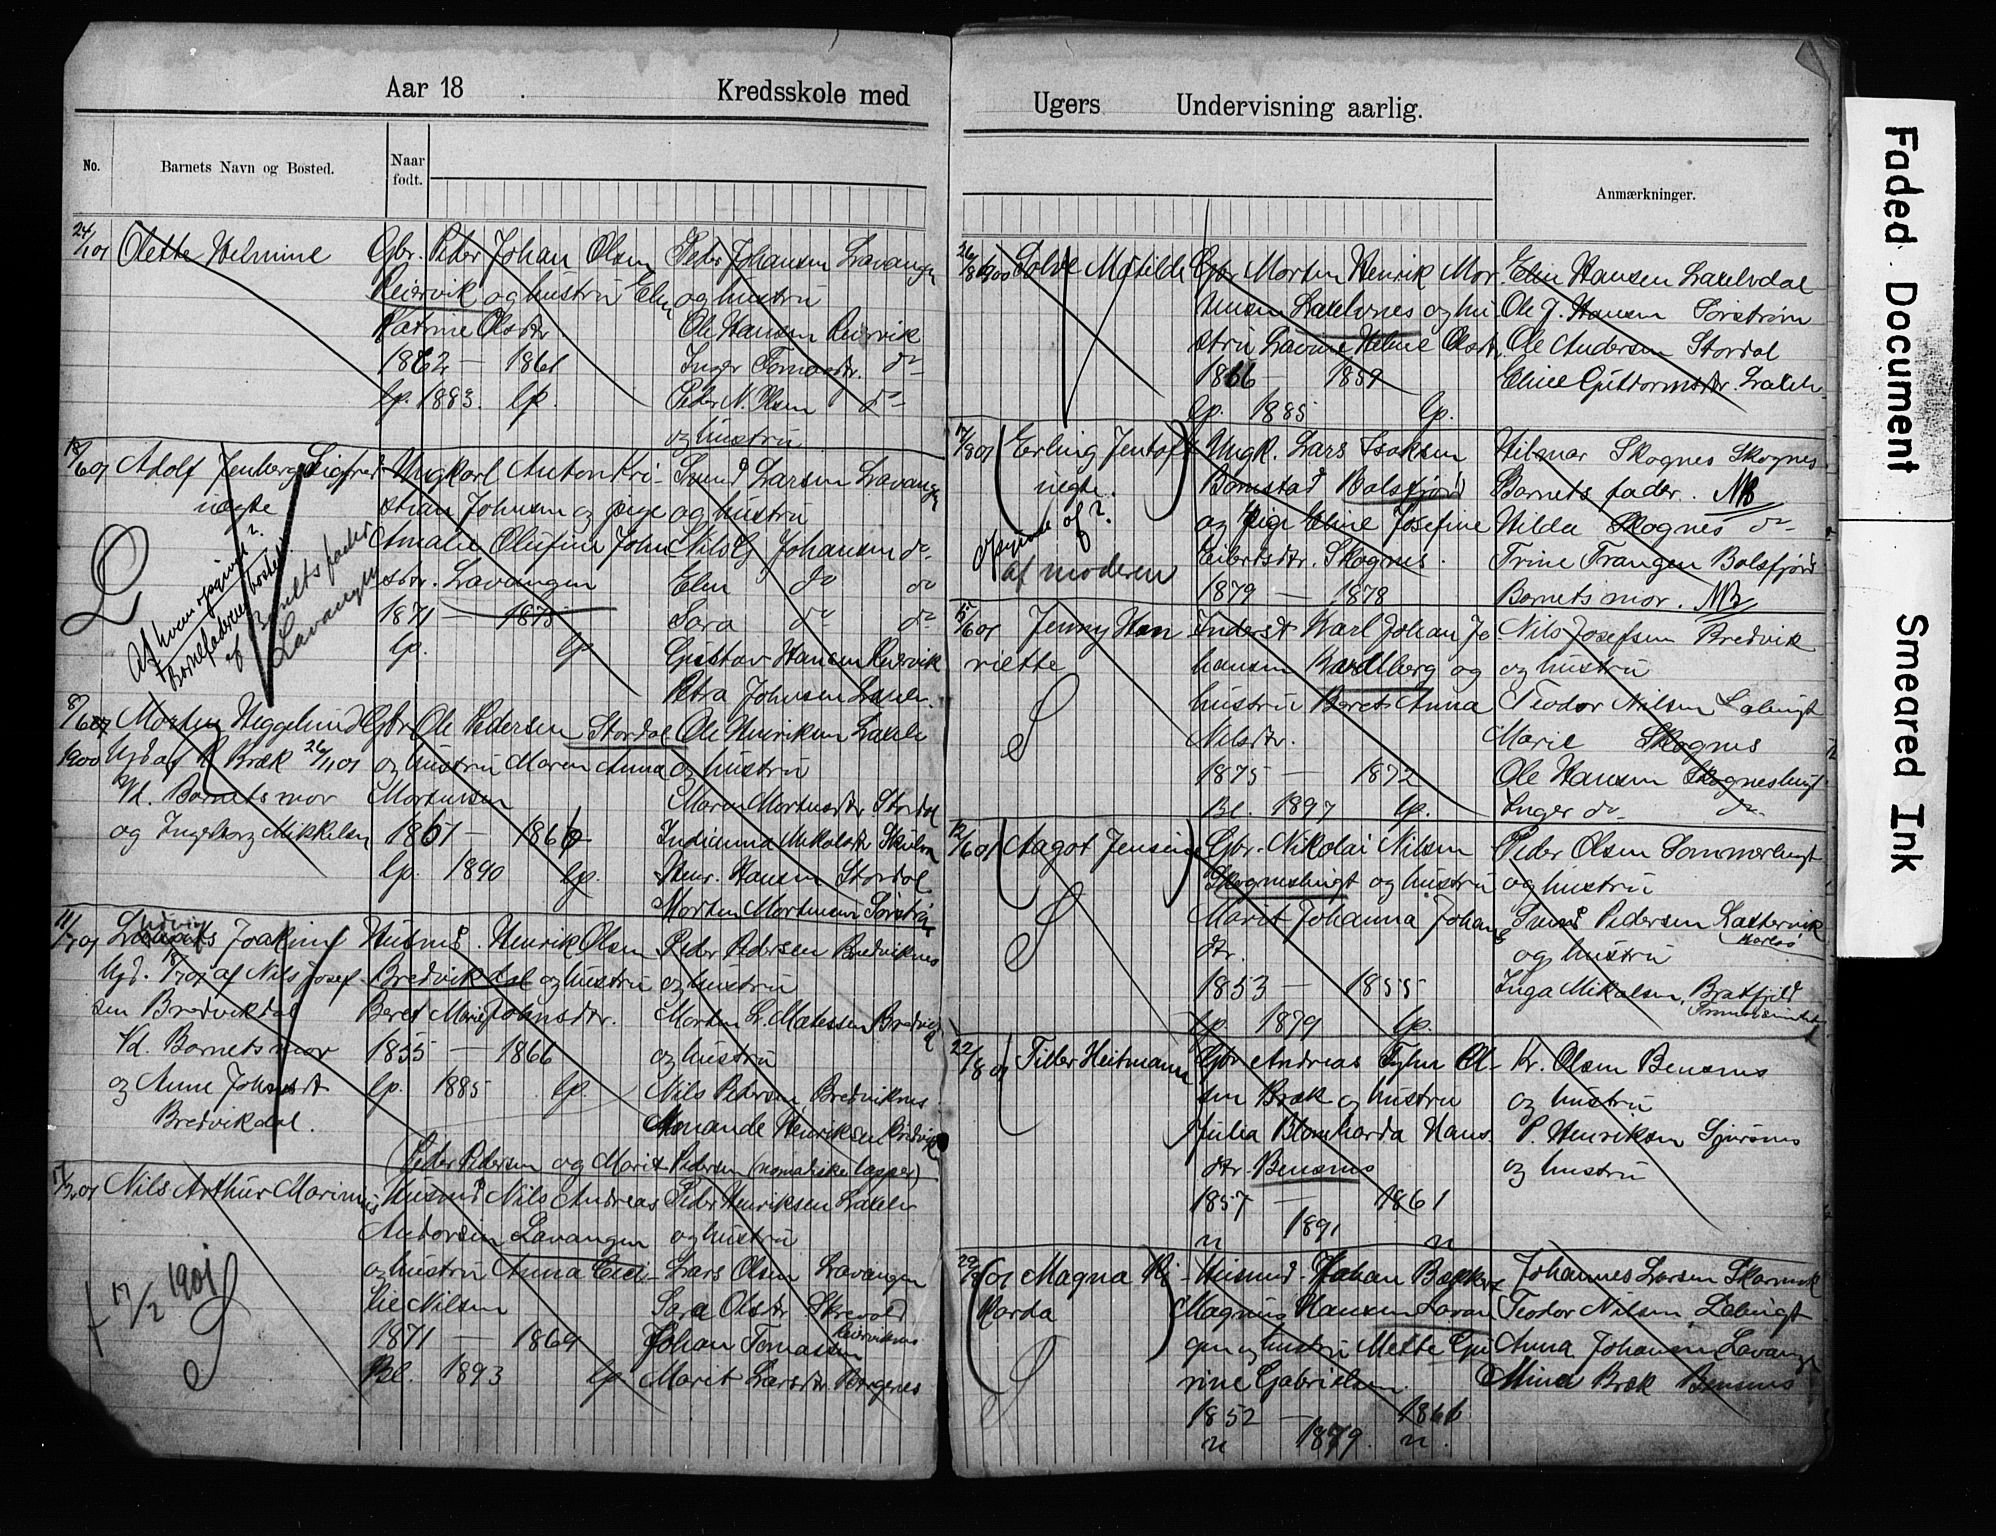 Aar 18 Kredsskole med
No. Barnets Navn og Bosted. Naar født.
24/1 01 Olette Helmine
Gbr. Peder Johan Olsen
Reiervik og hustru Elen
Katrine Olsdtr.
1862 — 1861
Lp. 1883. Lp.
Peder Johansen Lavangen
og hustru
Ole Hansen Reiervik
Inger Tomasdtr. do
Peder N. Olsen do
og hustru
18/6 01 Adolf Jenberg Sigfred
uægte
Af hvem opgivet?
Barnefaderens bosted?
af Barnets fader
Lavangen
Ungkarl Anton Kri-
stian Johnsen og pige
Amalie Olufine John
sdtr. Lavangen
1871 — 1875
Lp. Lp
Svend Larsen Lavangen
og hustru
Nils G. Johansen do.
Elen do do
Sara do do
Gustav Hansen Reiervik
Petra Johnsen
8/6 Morten Heggelund
1900 Hjd af P. Bræk 26/1 01
Vd. Barnets mor
og Ingeborg Mikkelsen
Gbr. Ole Pedersen Stordal
og hustru Maren Anna
Mortensen
1861 — 1866
Lp. 1890 Lp.
Ole Henriksen
og hustru
Maren Mortensdtr Stordal
Indianna Mikalsdtr
Henr. Hansen Stordal
Morten Mortensen Sørstrøm
11/7 01 Ludvig Joakim
Hjd. 18/7 01 af Nils Josef-
sen Bredvikdal
Vd. Barnets mor
og Anne Johnsdt
Bredvikdal.
Husmd. Henrik Olsen
Bredvikdal og hustru
Beret Marie Johnsdtr.
1855 — 1866
Lp. 1885 Lp.
Peder Pedersen Bredviknes
og hustru
Morten L. Matessen Bredvikd
og hustru
Nils Petersen Bredviknes.
Amande Henriksen Bredvik
(Peder Pedersen og Marit Pedersen (nomadiske lapper)
Nils Arthur Marinius
† 17/2 1901
Husmd Nils Andreas
Andersen Lavangen
og hustru Anna Ceci-
lie Nilsen
1871 — 1869
Bl. 1893 Lp
Peder Henriksen
og hustru
Lars Olsen Lavangen
Sara Olsdtr Skrevold
Johan Tomassen Reierviknes
Marit Larsdtr.
Ugers Undervisning aarlig.
Anmærkninger.
26/8 1900 Solve Matilde
Gbr Morten Henrik Mor-
tensen Lakselvnes og hu
stru Lavine Heline Olsdtr.
1866 1859
Lp. 1885 Lp.
Elen Hansen Lakselvdal
Ole J. Hansen Sørstrøm
Ole Andersen Stordal
Eline Guttormsdtr.
17/8 01 Erling Jentoft
uegte.
af?
af moderen
Ungk. Lars Isaksen
Bomstad Balsfjord
og Pige Eline Josefine
Eibertsdtr. Skognes.
1879 — 1878
Hilmar Skognes Skognes
Barnets fader. NB
Hilda Skognes do
Trine Trangen Balsfjord
Barnets mor. NB
15/6 01 Jenny Han
riette
Inderst Karl Johan Jo
hansen Bardtberg og
hustru Beret Anna
Nilsdtr.
1875 — 1872
Bl. 1897 Lp.
Nils Josefsen Bredvik
og hustru
Teodor Nilsen
Marie Skognes
Ole Hansen Skognesbugt
Inger do do
12/6 01 Aagot Jensine
Gbr. Nikolai Nilsen
Skognesbugt og hustru
Marit Johanna Johans
dtr.
1853 — 1855
Lp. 1879 Lp.
Peder Olsen Sommerbugt
og hustru
Svend Pedersen Lattervik
Karlsø
og hustru
Inga Mikalsen, Bratfjeld
22/8 01 Tiller Heitmann
Gbr Andreas Tyhn Ol-
sen Bræk og hustru
Julia Blomharda Hans
dtr. Bensnes
1857 — 1861
" 1891 "
Kr. Olsen Bensnes
og hustru
P. Henriksen Sjursnes
og hustru
29/8 01 Magna Ri-
karda
Husmd. Johan
Magnus Hansen Lavan
gen og hustru Mette Gu
rine Gabrielsen.
1852 — 1861
" 1879. ".
Johannes Larsen
Teodor Nilsen,
Anna Johansen Lavangen
Mina Bræk Bensnes
Faded Document Smeared Ink